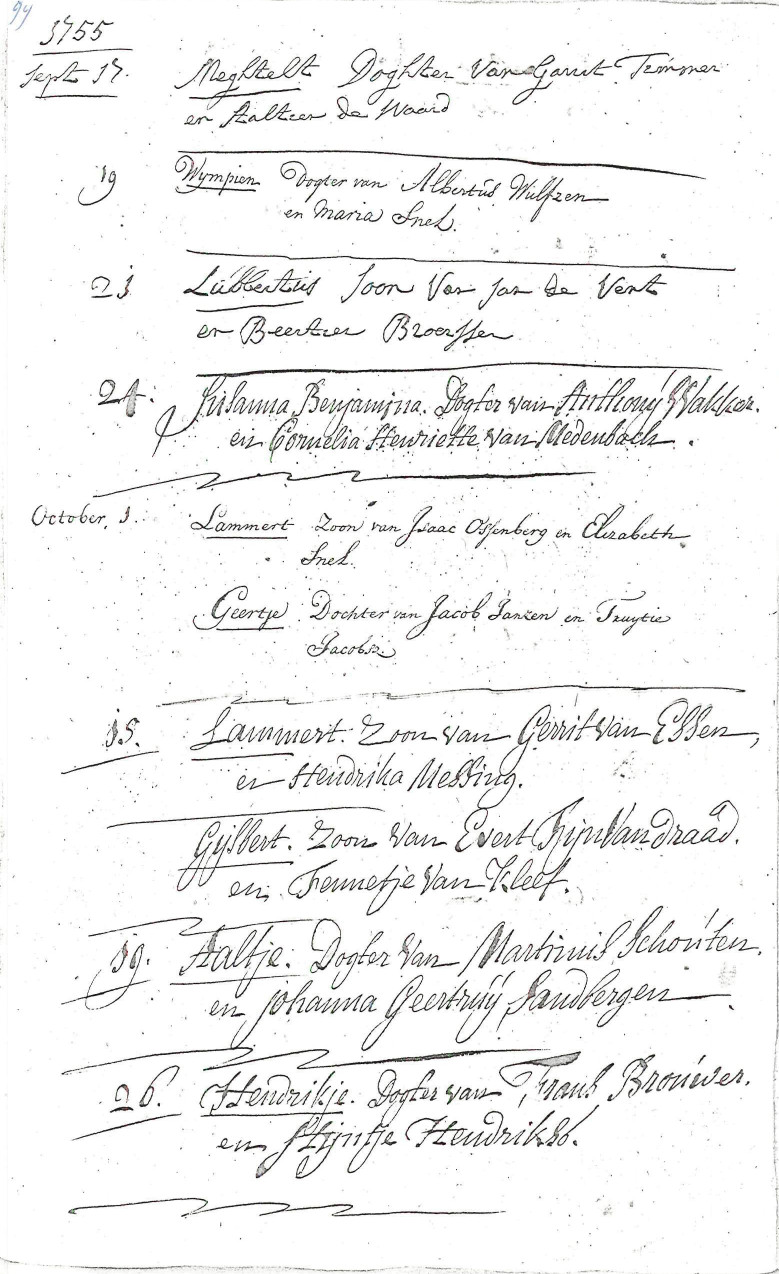 99
1755
Sept 17. Meghtelt Doghter Van Garrit Timmer
en Aaltien de Waard
19 Wympien Dogter van Albertus Wulfzen
en Maria Snel.
21 Lubbertus Soon Van Jan de Vent
en Beertien Broerssen
24. Susanna Benjamina. Dogter van Anthony Wakker.
en Cornelia Henriette van Medenbach.
October, 1. Lammert Zoon van Isaac Ossenberg en Elizabeth
Snel.
Geertje Dochter van Jacob Janzen en Truytie
Jacobsz.
15. Lammert. Zoon van Gerrit van Essen,
en Hendrika Messing.
Gijsbert. Zoon Van Evert Rijn Van draad.
en Fennetje Van Kleef.
19. Aaltje. Dogter Van Martinus Schouten.
en Johanna Geertruÿ Sandbergen.
26. Hendrikje. Dogter van Frans Brouwer.
en Stijntje Hendriks.